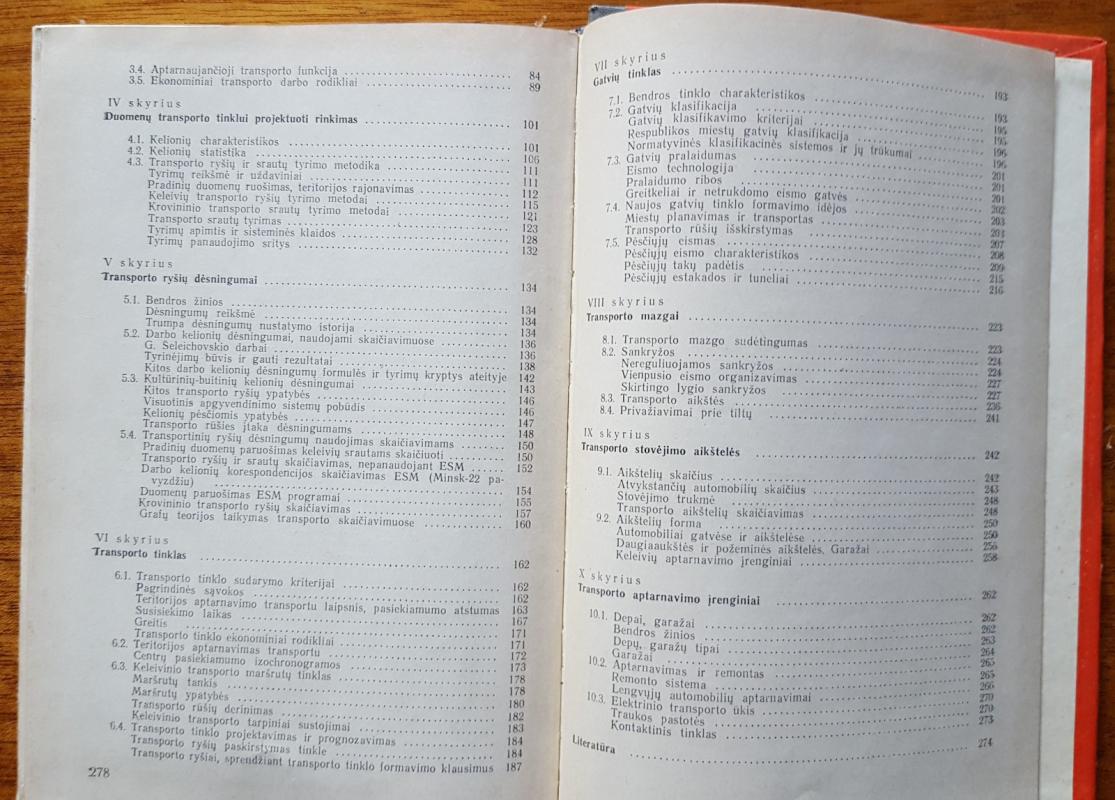 3.4. Aptarnaujančioji transporto funkcija 84
3.5. Ekonominiai transporto darbo rodikliai 89
IV skyrius
Duomenų transporto tinklui projektuoti rinkimas 101
4.1. Kelionių charakteristikos 101
4.2. Kelionių statistika 106
4.3. Transporto ryšių ir srautų tyrimo metodika 111
Tyrimų reikšmė ir uždaviniai 111
Pradinių duomenų ruošimas, teritorijos rajonavimas 112
Keleivių transporto ryšių tyrimo metodai 115
Krovininio transporto srautų tyrimo metodai 121
Transporto srautų tyrimas 123
Tyrimų apimtis ir sisteminės klaidos 128
Tyrimų panaudojimo sritys 132
V skyrius
Transporto ryšių dėsningumai 134
5.1. Bendros žinios 134
Dėsningumų reikšmė 134
Trumpa dėsningumų nustatymo istorija 134
5.2. Darbo kelionių dėsningumai, naudojami skaičiavimuose 136
G. Šeleichovskio darbai 136
Tyrinėjimų būvis ir gauti rezultatai 138
Kitos darbo kelionių dėsningumų formulės ir tyrimų kryptys ateityje 142
5.3. Kultūrinių-buitinių kelionių dėsningumai 143
Kitos transporto ryšių ypatybės 146
Visuotinis apgyvendinimo sistemų pobūdis 146
Kelionių pėsčiomis ypatybės 147
Transporto rūšies įtaka dėsningumams 148
5.4. Transportinių ryšių dėsningumų naudojimas skaičiavimams 150
Pradinių duomenų paruošimas keleivių srautams skaičiuoti 150
Transporto ryšių ir srautų skaičiavimas, nepanaudojant ESM 152
Darbo kelionių korespondencijos skaičiavimas ESM (Minsk-22 pa-
vyzdžiu) 154
Duomenų paruošimas ESM programai 155
Krovininio transporto ryšių skaičiavimas 157
Grafų teorijos taikymas transporto skaičiavimuose 160
VI skyrius
Transporto tinklas 162
6.1. Transporto tinklo sudarymo kriterijai 162
Pagrindinės sąvokos 162
Teritorijos aptarnavimo transportu laipsnis, pasiekiamumo atstumas 163
Susisiekimo laikas 167
Greitis 171
Transporto tinklo ekonominiai rodikliai 171
6.2. Teritorijos aptarnavimas transportu 172
Centrų pasiekiamumo izochronogramos 173
6.3. Keleivinio transporto maršrutų tinklas 178
Maršrutų tankis 178
Maršrutų ypatybės 180
Transporto rūšių derinimas 182
Keleivinio transporto tarpiniai sustojimai 183
6.4. Transporto tinklo projektavimas ir prognozavimas 184
Transporto ryšių paskirstymas tinkle 184
Transporto ryšiai, sprendžiant transporto tinklo formavimo klausimus 187
278
VII skyrius
Gatvių tinklas 193
7.1. Bendros tinklo charakteristikos 193
7.2. Gatvių klasifikacija 195
Gatvių klasifikavimo kriterijai 195
Respublikos miestų gatvių klasifikacija 196
Normatyvinės klasifikacinės sistemos ir jų trūkumai 196
7.3. Gatvių pralaidumas 201
Eismo technologija 201
Pralaidumo ribos 201
Greitkeliai ir netrukdomo eismo gatvės 202
7.4. Naujos gatvių tinklo formavimo idėjos 203
Miestų planavimas ir transportas 203
Transporto rūšių išskirstymas 207
7.5. Pėsčiųjų eismas 208
Pėsčiųjų eismo charakteristikos 209
Pėsčiųjų takų padėtis 215
Pėsčiųjų estakados ir tuneliai 216
VIII skyrius
Transporto mazgai 223
8.1. Transporto mazgo sudėtingumas 223
8.2. Sankryžos 224
Nereguliuojamos sankryžos 224
Vienpusio eismo organizavimas 227
Skirtingo lygio sankryžos 227
8.3. Transporto aikštės 236
8.4. Privažiavimai prie tiltų 241
IX skyrius
Transporto stovėjimo aikštelės 242
9.1. Aikštelių skaičius 242
Atvykstančių automobilių skaičius 243
Stovėjimo trukmė 248
Transporto aikštelių skaičiavimas 248
9.2. Aikštelių forma 250
Automobiliai gatvėse ir aikštelėse 250
Daugiaaukštės ir požeminės aikštelės, Garažai 256
Keleivių aptarnavimo įrenginiai 258
X skyrius
Transporto aptarnavimo įrenginiai 262
10.1. Depai, garažai 262
Bendros žinios 262
Depų, garažų tipai 263
Garažai 264
10.2. Aptarnavimas ir remontas 265
Remonto sistema 265
Lengvųjų automobilių aptarnavimai 266
10.3. Elektrinio transporto ūkis 270
Traukos pastotės 270
Kontaktinis tinklas 273
Literatūra 274